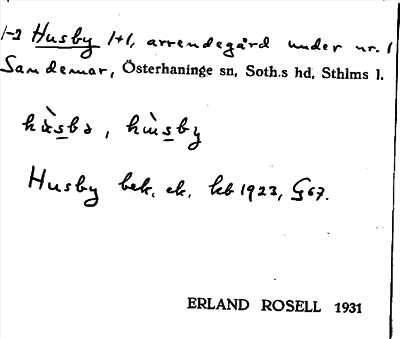 1-2 Husby 1+1, arrendegård under nr. 1
Sandemar, Österhaninge sn, Soth.s hd, Sthlms l.
hùsby
Husby bek. ek. kb 1923, G67.
ERLAND ROSELL 1931